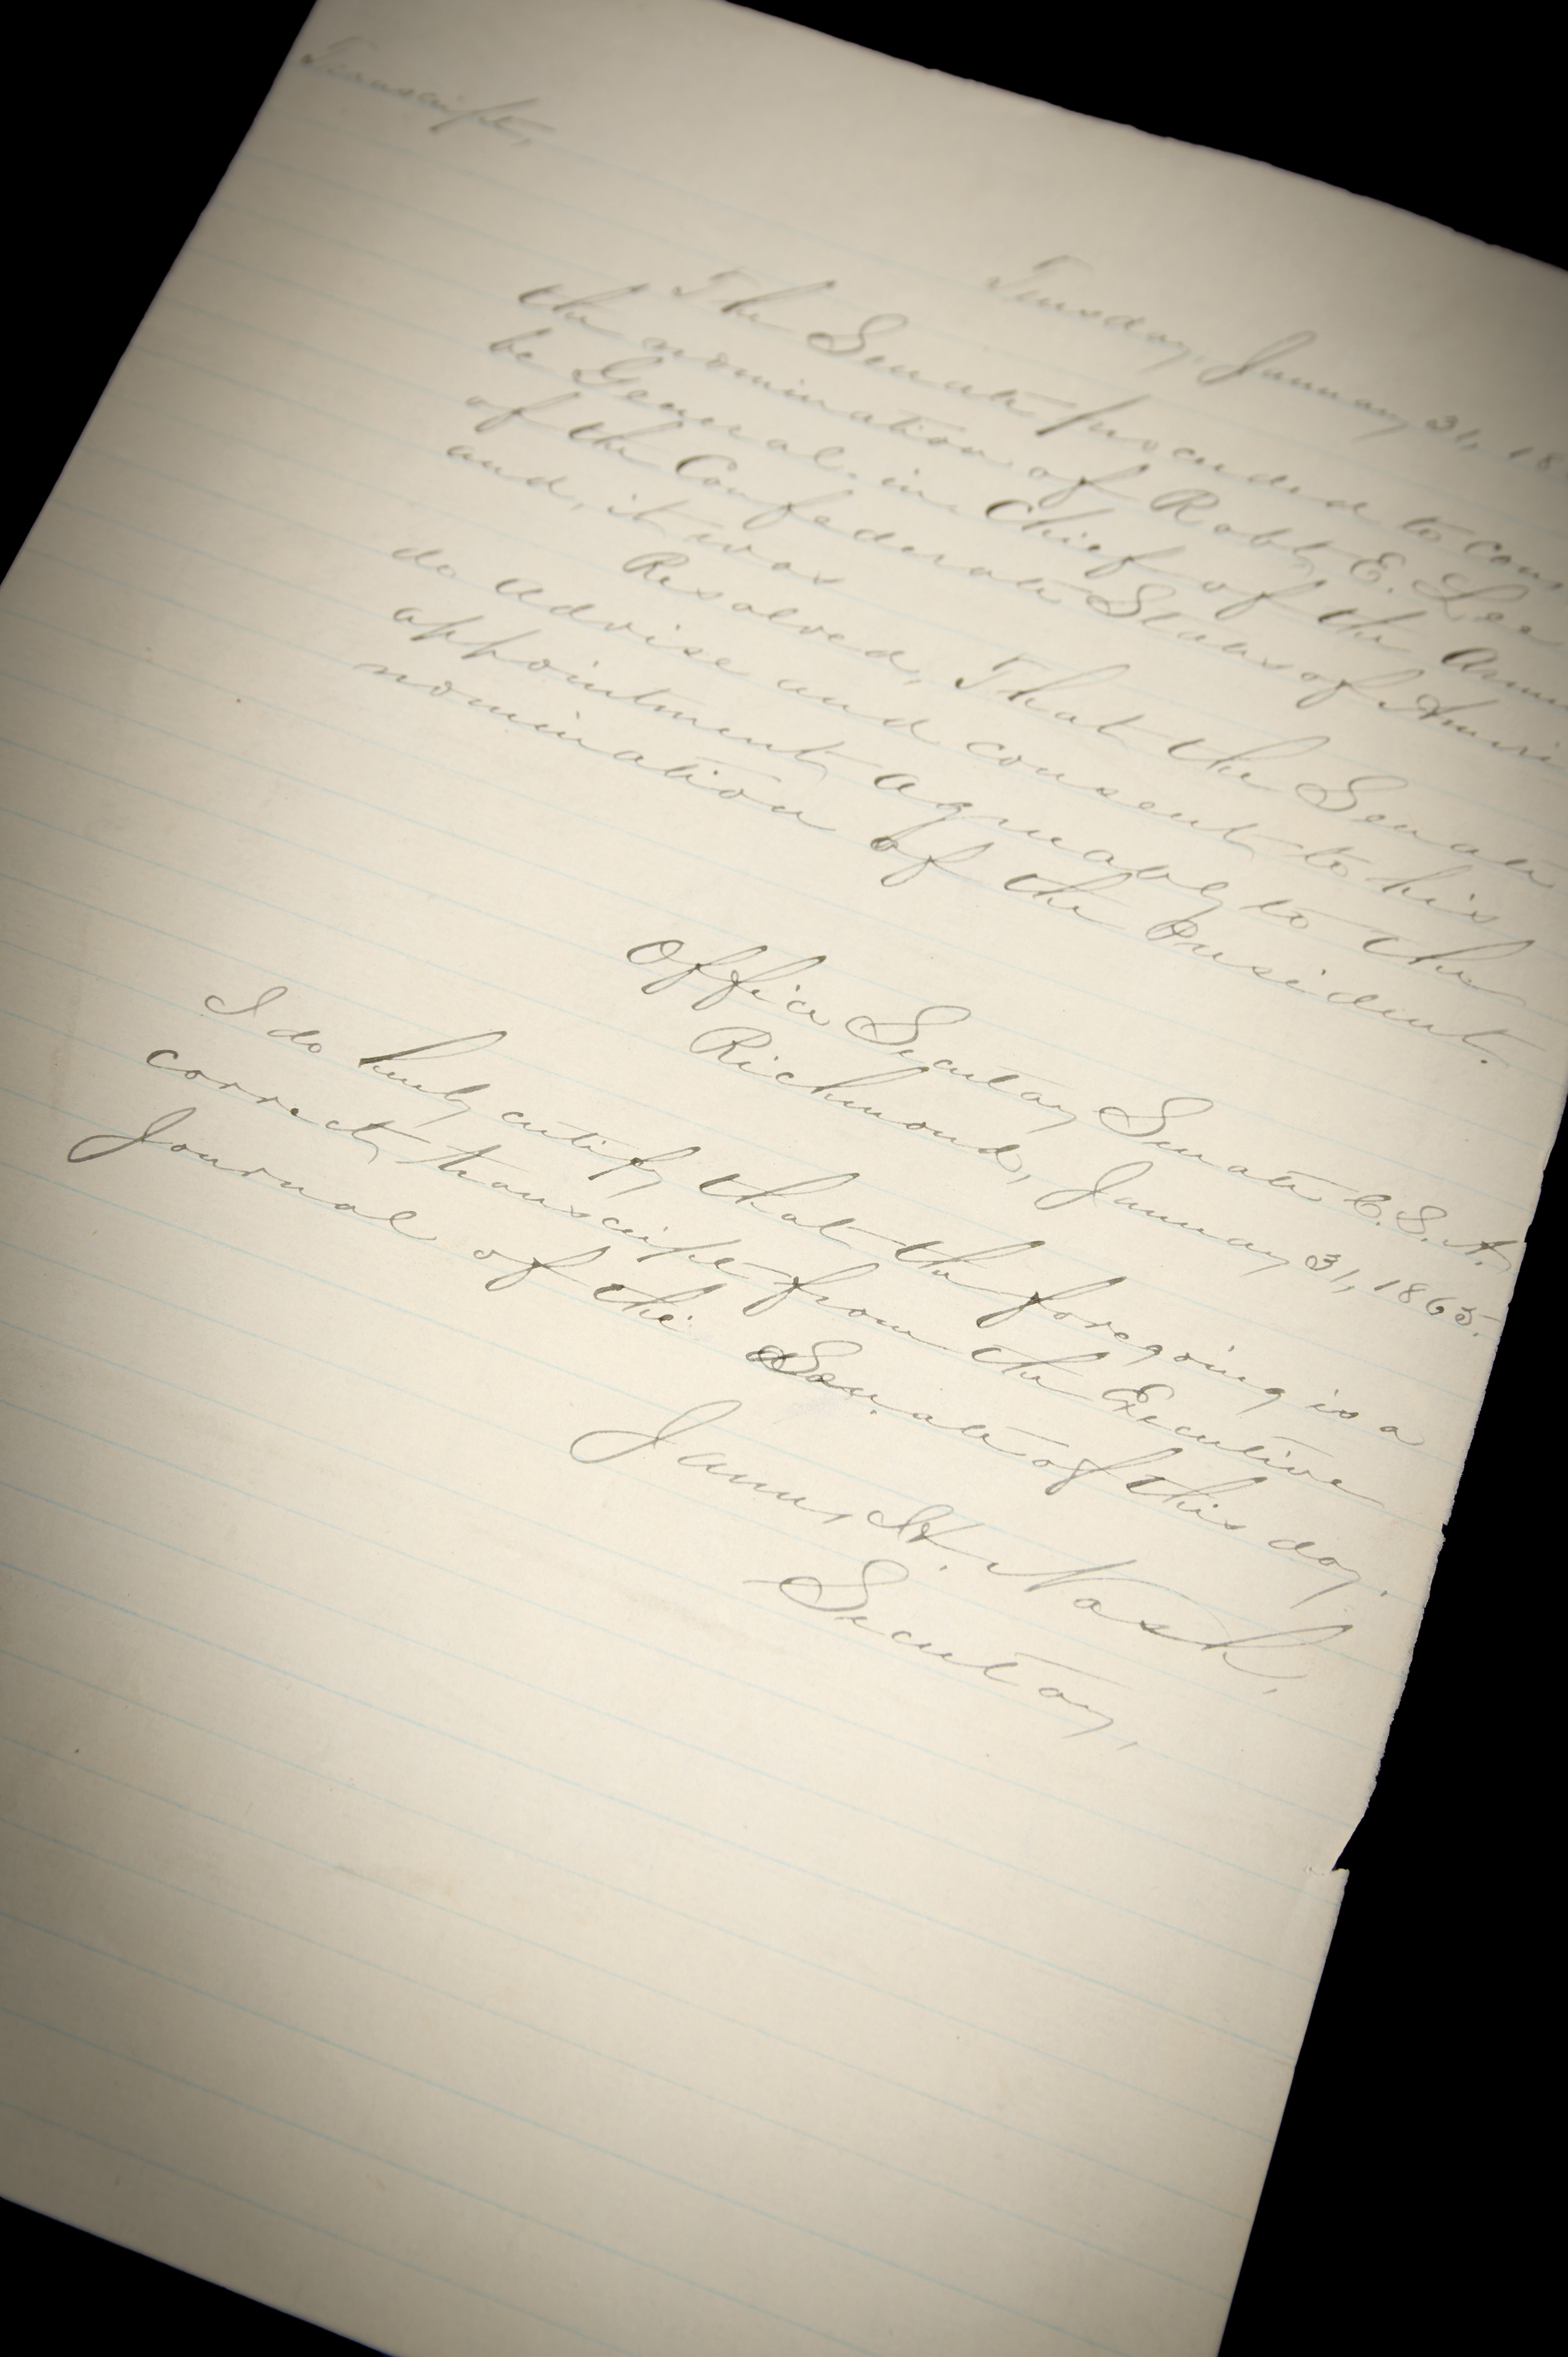 Transcript,
Tuesday, January 31, 18
The Senate proceeded to cons
the nomination of Robt. E. Lee
be General in Chief of the Armi
of the Confederate States of Ameri
and, it was
Resolved, That the Senate
do advise and consent to his
appointment agreeably to the
nomination of the President.
Office Secretary Senate C.S.A.
Richmond, January 31, 1865.
I do hereby certify that the foregoing is a
correct transcript from the Executive
Journal of the Senate of this day.
James H. Nash,
Secretary,